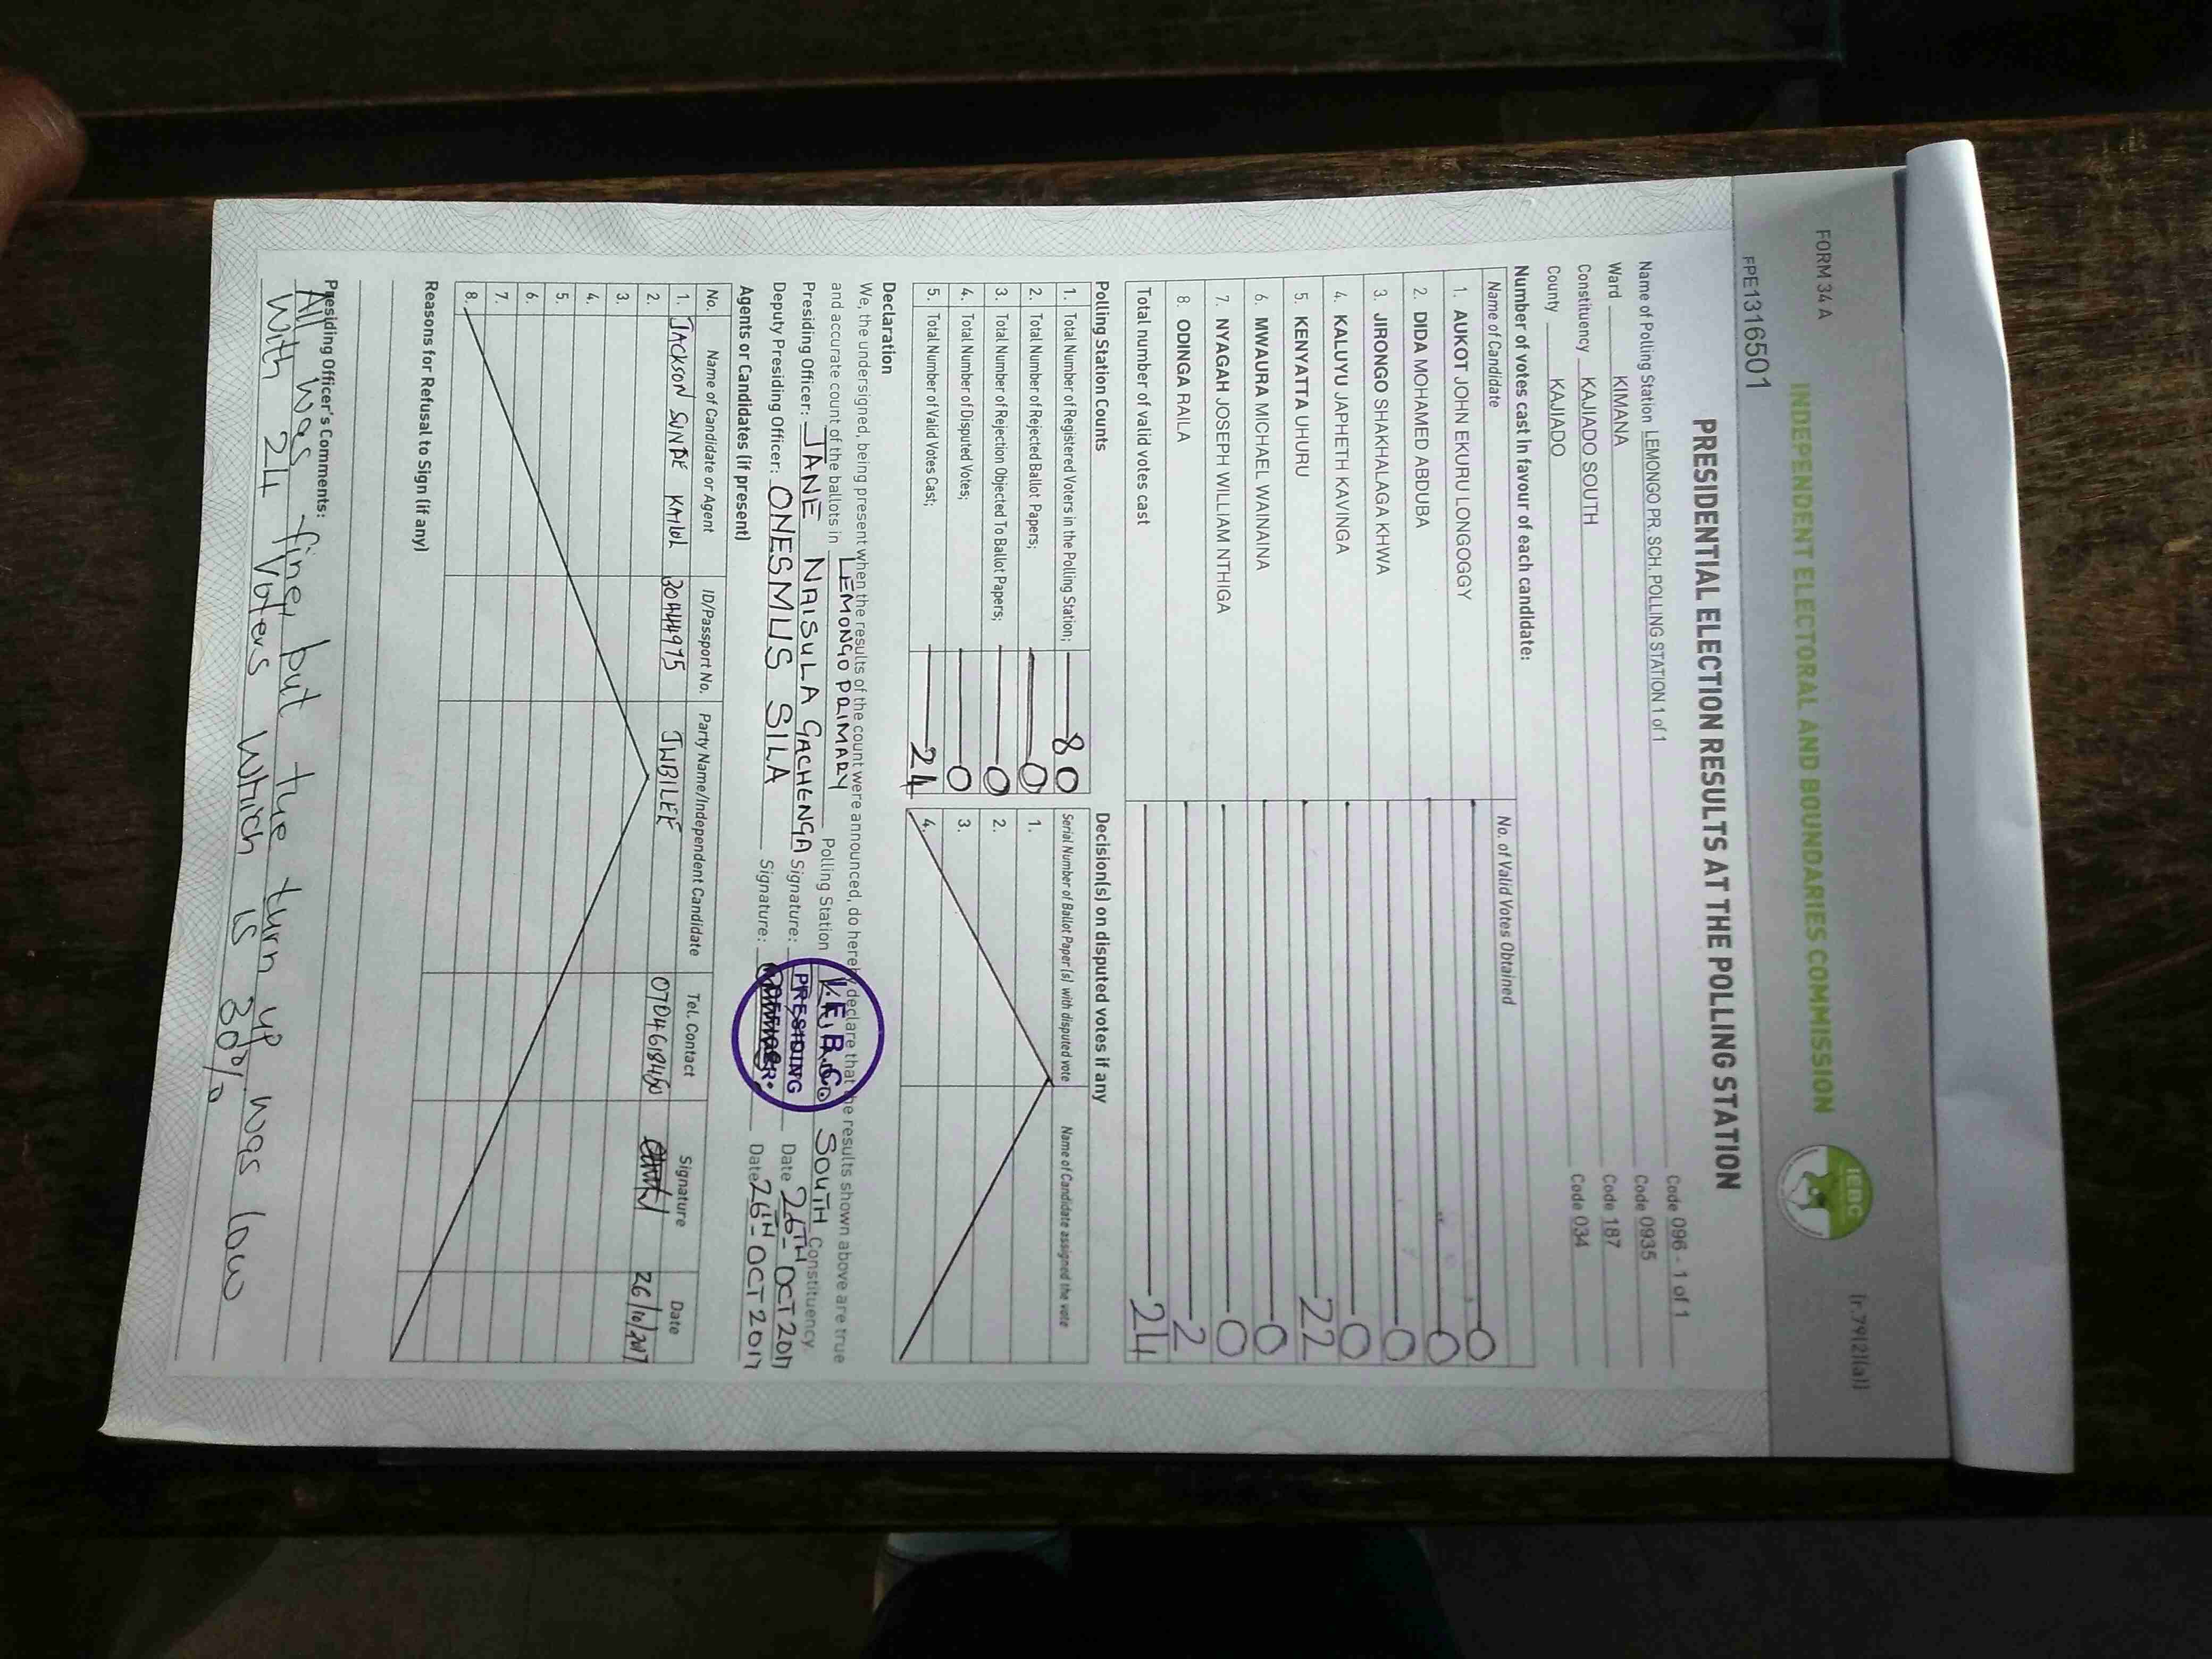 FORM 34 A
(r.79(2)(a))
INDEPENDENT ELECTORAL AND BOUNDARIES COMMISSION
IEBC
FPE1316501
PRESIDENTIAL ELECTION RESULTS AT THE POLLING STATION
Name of Polling Station LEMONGO PR. SCH. POLLING STATION 1 of 1 Code 096 - 1 of 1
Ward KIMANA Code 0935
Constituency KAJIADO SOUTH Code 187
County KAJIADO Code 034
Number of votes cast in favour of each candidate:
Name of Candidate No. of Valid Votes Obtained
1. AUKOT JOHN EKURU LONGOGGY 0
2. DIDA MOHAMED ABDUBA 0
3. JIRONGO SHAKHALAGA KHWA 0
4. KALUYU JAPHETH KAVINGA 0
5. KENYATTA UHURU 22
6. MWAURA MICHAEL WAINAINA 0
7. NYAGAH JOSEPH WILLIAM NTHIGA 0
8. ODINGA RAILA 2
Total number of valid votes cast 24
Polling Station Counts
1. Total Number of Registered Voters in the Polling Station; 80
2. Total Number of Rejected Ballot Papers; 0
3. Total Number of Rejection Objected To Ballot Papers; 0
4. Total Number of Disputed Votes; 0
5. Total Number of Valid Votes Cast; 24
Decision(s) on disputed votes if any
Serial Number of Ballot Paper(s) with disputed vote Name of Candidate assigned the vote
1.
2.
3.
4.
Declaration
We, the undersigned, being present when the results of the count were announced, do hereby declare that the results shown above are true
and accurate count of the ballots in LEMONGO PRIMARY Polling Station SOUTH Constituency.
Presiding Officer: JANE NAISULA GACHENGA Signature: Date 26TH OCT 2017
Deputy Presiding Officer: ONESMUS SILA Signature: Date 26TH OCT 2017
I.E.B.C.
PRESIDING
OFFICER
Agents or Candidates (if present)
No. Name of Candidate or Agent ID/Passport No. Party Name/Independent Candidate Tel. Contact Signature Date
1. JACKSON SUNDE 26/10/2017
2.
3.
4.
5.
6.
7.
8.
Reasons for Refusal to Sign (if any)
Presiding Officer's Comments:
All was fine, but the turn up was low
With 24 Voters which is 30%